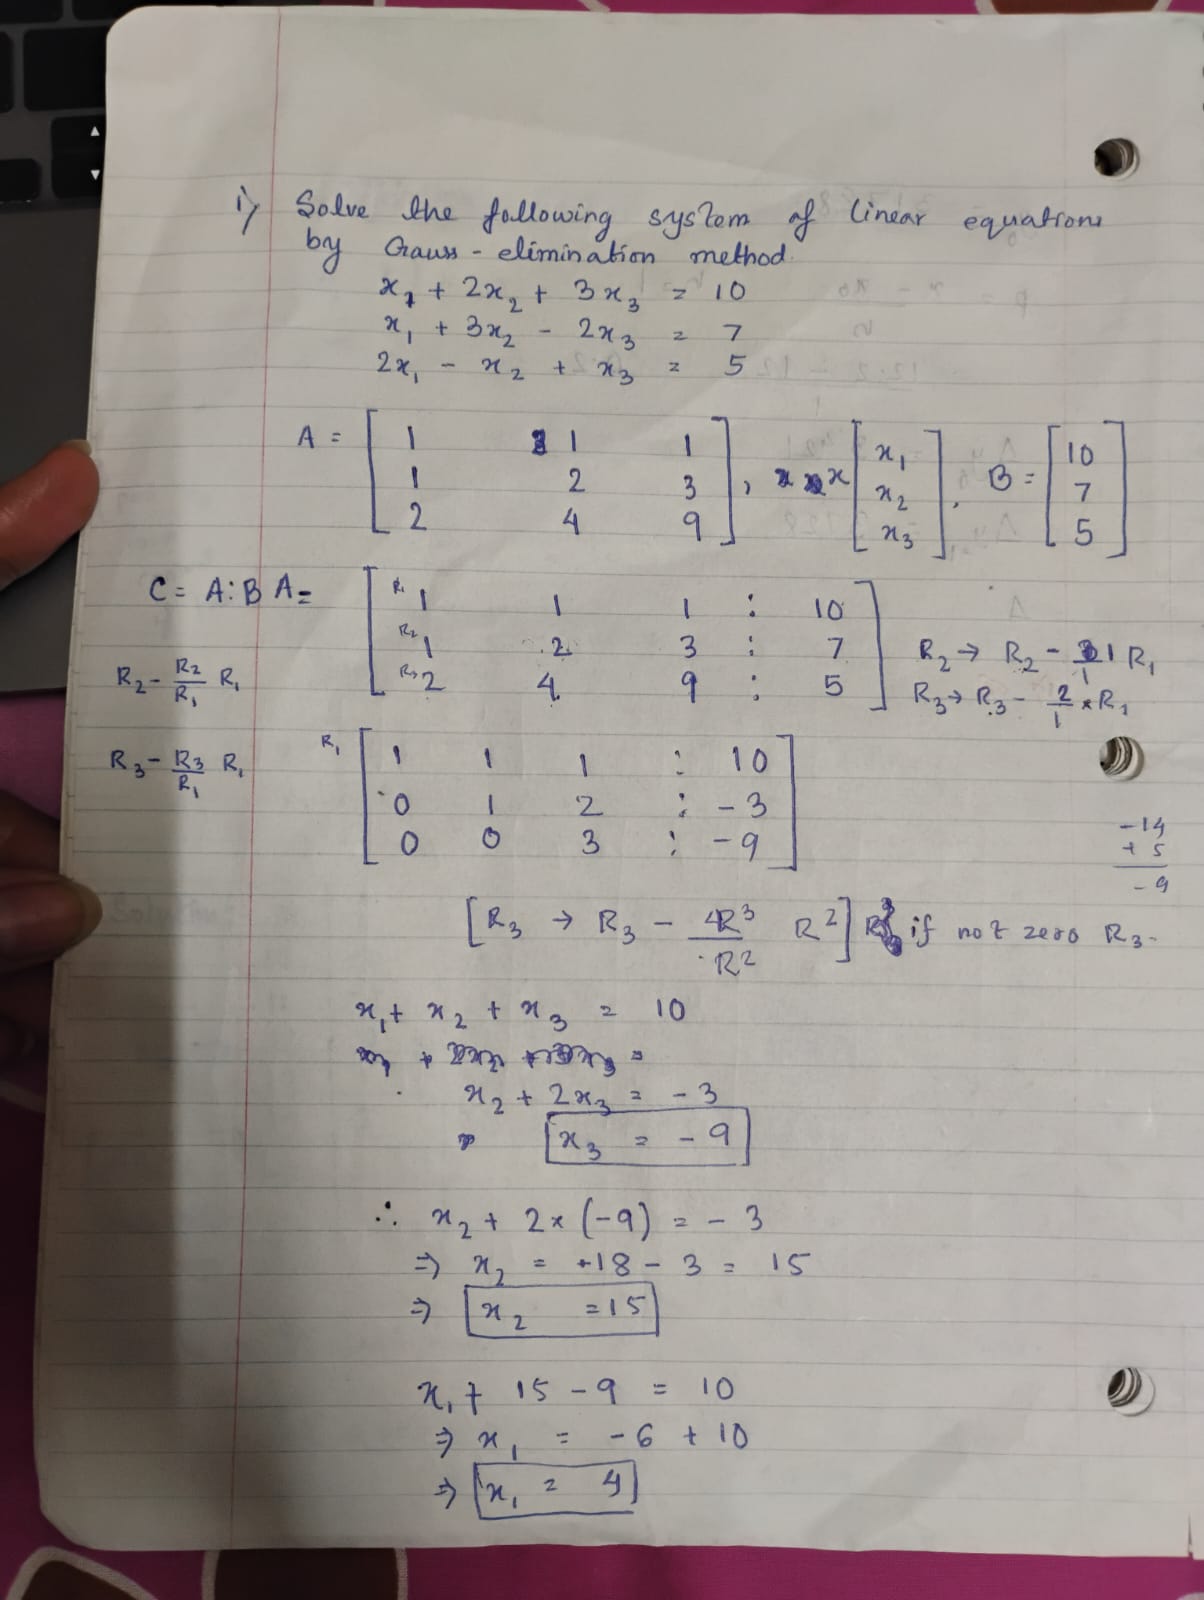 i) Solve the following system of linear equations
by Gauss-elimination method.
x₁ + 2x₂ + 3x₃ = 10
x₁ + 3x₂ - 2x₃ = 7
2x₁ - x₂ + x₃ = 5
A = [ 1 1 1 ], x [ x₁ ], B = [ 10 ]
1 2 3 x₂ 7
2 4 9 x₃ 5
C = A:B A = [ R₁ 1 1 1 : 10 ]
R₂ 1 2 3 : 7 R₂ → R₂ - 1/1 R₁
R₃ 2 4 9 : 5 R₃ → R₃ - 2/1 × R₁
R₂ - R₂/R₁ R₁
R₃ - R₃/R₁ R₁
R₁ [ 1 1 1 : 10 ]
0 1 2 : -3
0 0 3 : -9
-14
+ 5
-9
[R₃ → R₃ - 4R³/R² R²] if not zero R₃.
x₁ + x₂ + x₃ = 10
x₂ + 2x₃ = -3
x₃ = -9
∴ x₂ + 2×(-9) = -3
⇒ x₂ = +18 - 3 = 15
⇒ x₂ = 15
x₁ + 15 - 9 = 10
⇒ x₁ = -6 + 10
⇒ x₁ = 4